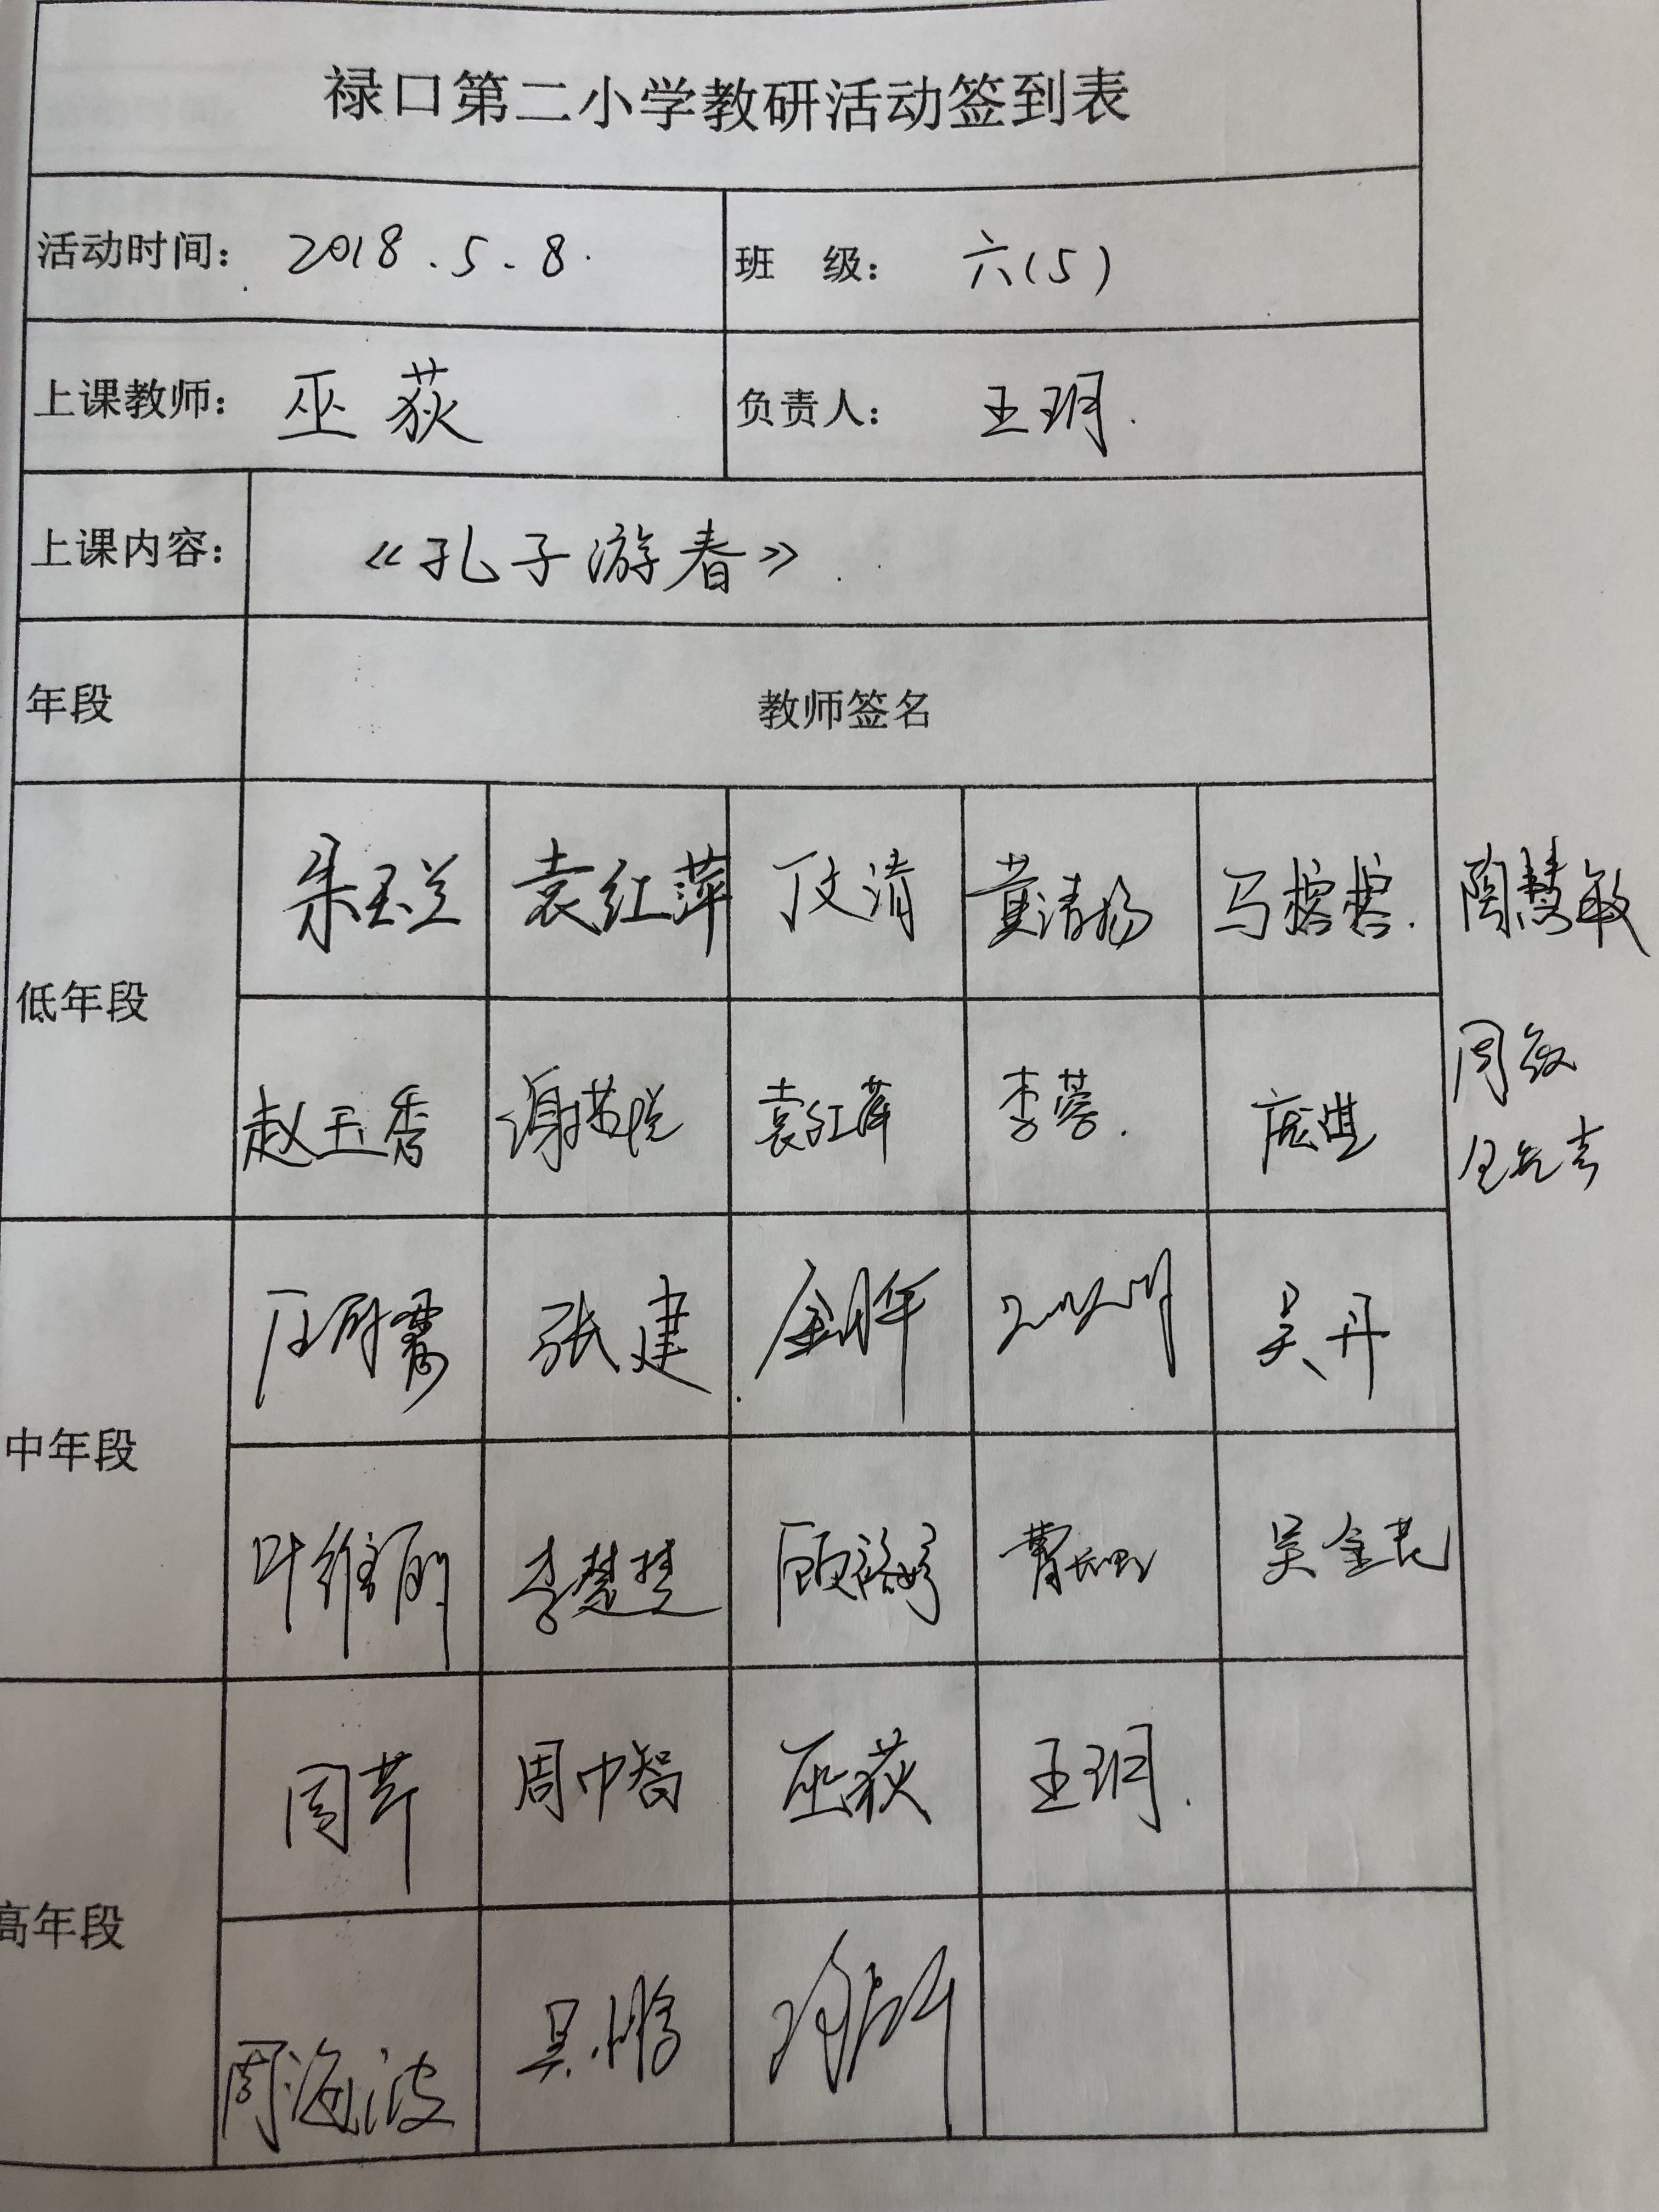 禄口第二小学教研活动签到表
活动时间： 2018.5.8. 班 级： 六(5)
上课教师： 巫荻 负责人： 王玥.
上课内容： 《孔子游春》.
年段 教师签名
朱玉兰 袁红萍 丁文清 黄清扬 马榕榕. 陶慧敏
低年段
周敏
赵玉秀 谢苗悦 袁红萍 李蓉. 庞淇
张建 吴丹
中年段
叶维丽 李楚楚 顾 曹 吴金花
周芹 周中智 巫荻 王玥.
高年段
周海波 吴鹏